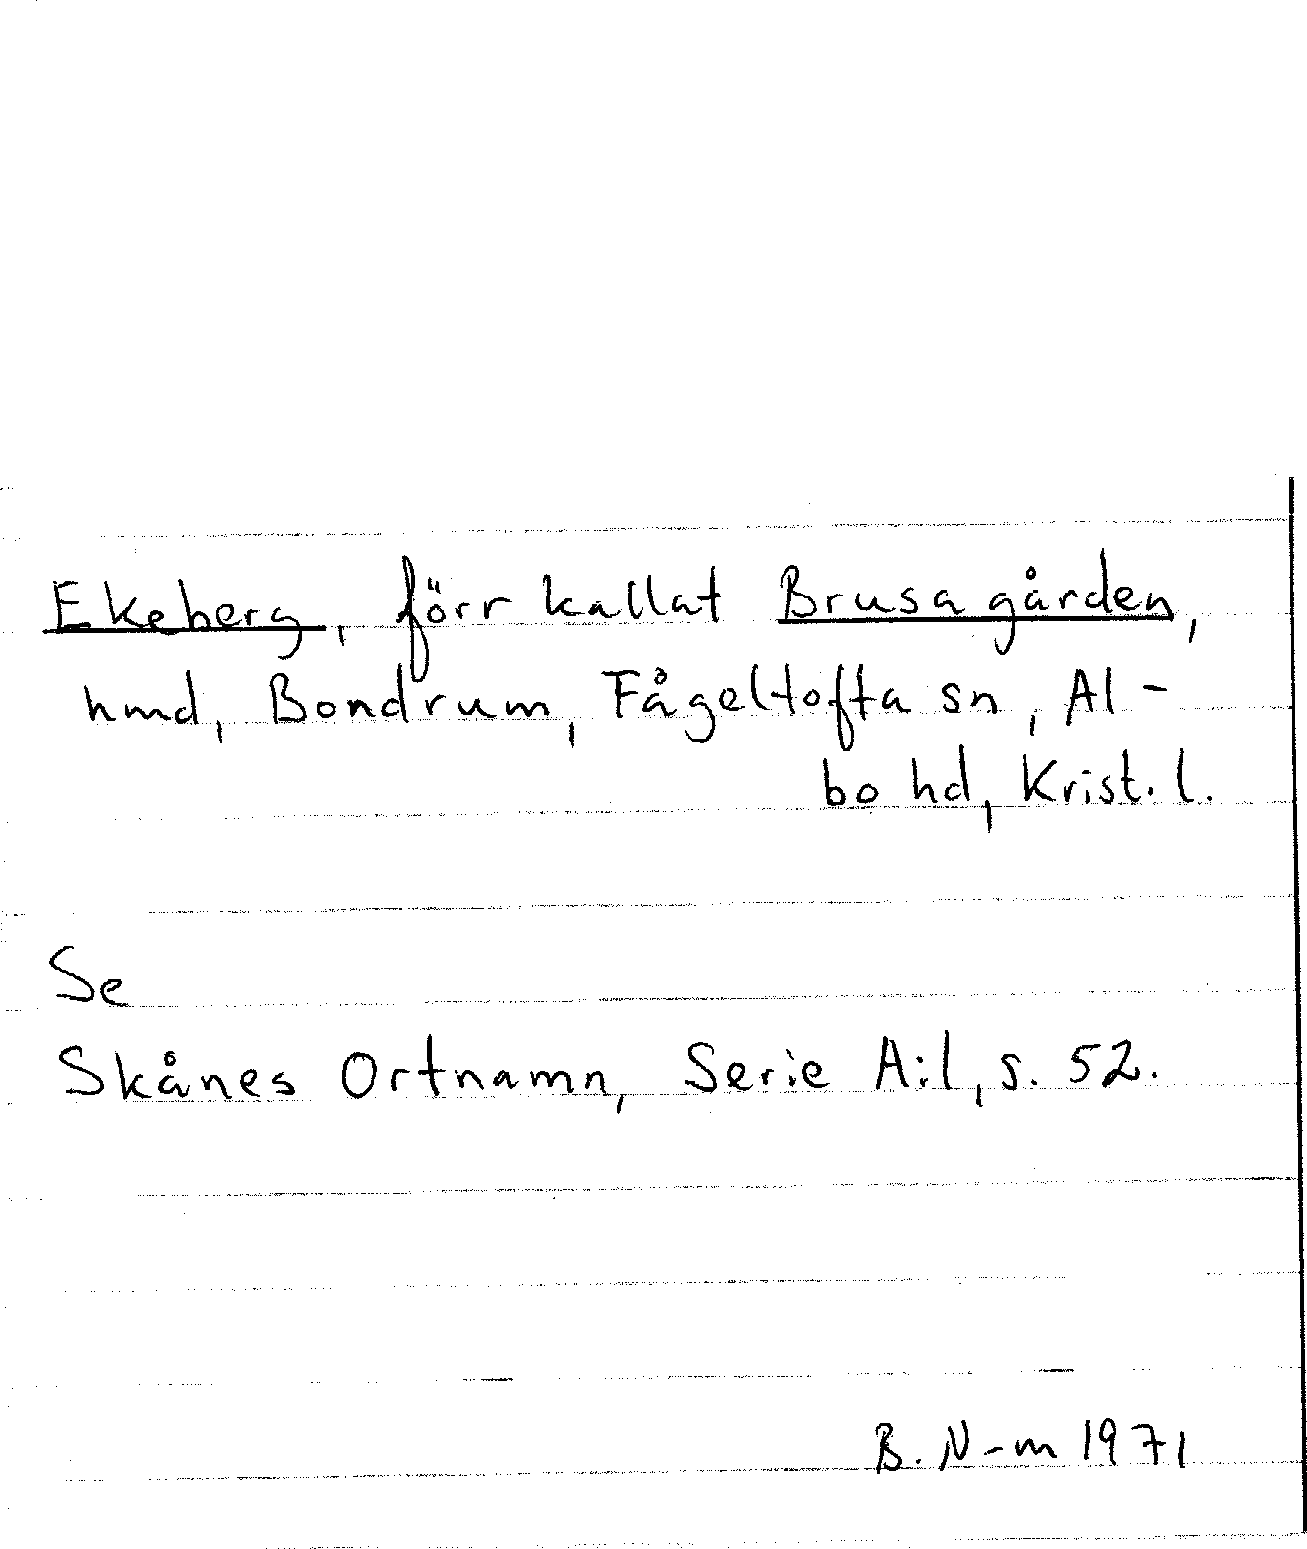 Ekeberg, förr kallat Brusagården,
hmd, Bondrum, Fågeltofta sn, Al-
bo hd, Krist. l.
Se
Skånes Ortnamn, Serie A:1, s. 52.
B. N-m 1971